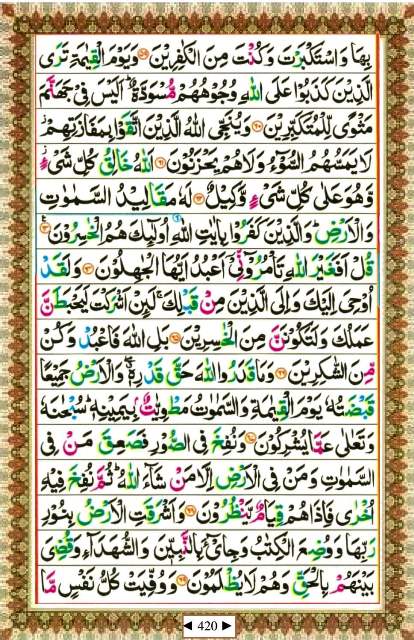 بِهَا وَاسْتَكْبَرْتَ وَكُنْتَ مِنَ الْكٰفِرِيْنَ ۝٥٩ وَيَوْمَ الْقِيٰمَةِ تَرَى
الَّذِيْنَ كَذَبُوْا عَلَى اللّٰهِ وُجُوْهُهُمْ مُّسْوَدَّةٌ ؕ اَلَيْسَ فِيْ جَهَنَّمَ
مَثْوًى لِّلْمُتَكَبِّرِيْنَ ۝٦٠ وَيُنَجِّي اللّٰهُ الَّذِيْنَ اتَّقَوْا بِمَفَازَتِهِمْ ؗ
لَا يَمَسُّهُمُ السُّوْٓءُ وَلَا هُمْ يَحْزَنُوْنَ ۝٦١ اَللّٰهُ خَالِقُ كُلِّ شَيْءٍ ؗ
وَّهُوَ عَلٰى كُلِّ شَيْءٍ وَّكِيْلٌ ۝٦٢ لَهٗ مَقَالِيْدُ السَّمٰوٰتِ
وَالْاَرْضِ ؕ وَالَّذِيْنَ كَفَرُوْا بِاٰيٰتِ اللّٰهِ اُولٰٓئِكَ هُمُ الْخٰسِرُوْنَ ۝٦٣
قُلْ اَفَغَيْرَ اللّٰهِ تَاْمُرُوْٓنِّيْٓ اَعْبُدُ اَيُّهَا الْجٰهِلُوْنَ ۝٦٤ وَلَقَدْ
اُوْحِيَ اِلَيْكَ وَاِلَى الَّذِيْنَ مِنْ قَبْلِكَ ۚ لَئِنْ اَشْرَكْتَ لَيَحْبَطَنَّ
عَمَلُكَ وَلَتَكُوْنَنَّ مِنَ الْخٰسِرِيْنَ ۝٦٥ بَلِ اللّٰهَ فَاعْبُدْ وَكُنْ
مِّنَ الشّٰكِرِيْنَ ۝٦٦ وَمَا قَدَرُوا اللّٰهَ حَقَّ قَدْرِهٖ ۖ وَالْاَرْضُ جَمِيْعًا
قَبْضَتُهٗ يَوْمَ الْقِيٰمَةِ وَالسَّمٰوٰتُ مَطْوِيّٰتٌۢ بِيَمِيْنِهٖ ؕ سُبْحٰنَهٗ
وَتَعٰلٰى عَمَّا يُشْرِكُوْنَ ۝٦٧ وَنُفِخَ فِي الصُّوْرِ فَصَعِقَ مَنْ فِي
السَّمٰوٰتِ وَمَنْ فِي الْاَرْضِ اِلَّا مَنْ شَآءَ اللّٰهُ ؕ ثُمَّ نُفِخَ فِيْهِ
اُخْرٰى فَاِذَا هُمْ قِيَامٌ يَّنْظُرُوْنَ ۝٦٨ وَاَشْرَقَتِ الْاَرْضُ بِنُوْرِ
رَبِّهَا وَوُضِعَ الْكِتٰبُ وَجِايْٓءَ بِالنَّبِيّٖنَ وَالشُّهَدَآءِ وَقُضِيَ
بَيْنَهُمْ بِالْحَقِّ وَهُمْ لَا يُظْلَمُوْنَ ۝٦٩ وَوُفِّيَتْ كُلُّ نَفْسٍ مَّا
◄ 420 ►